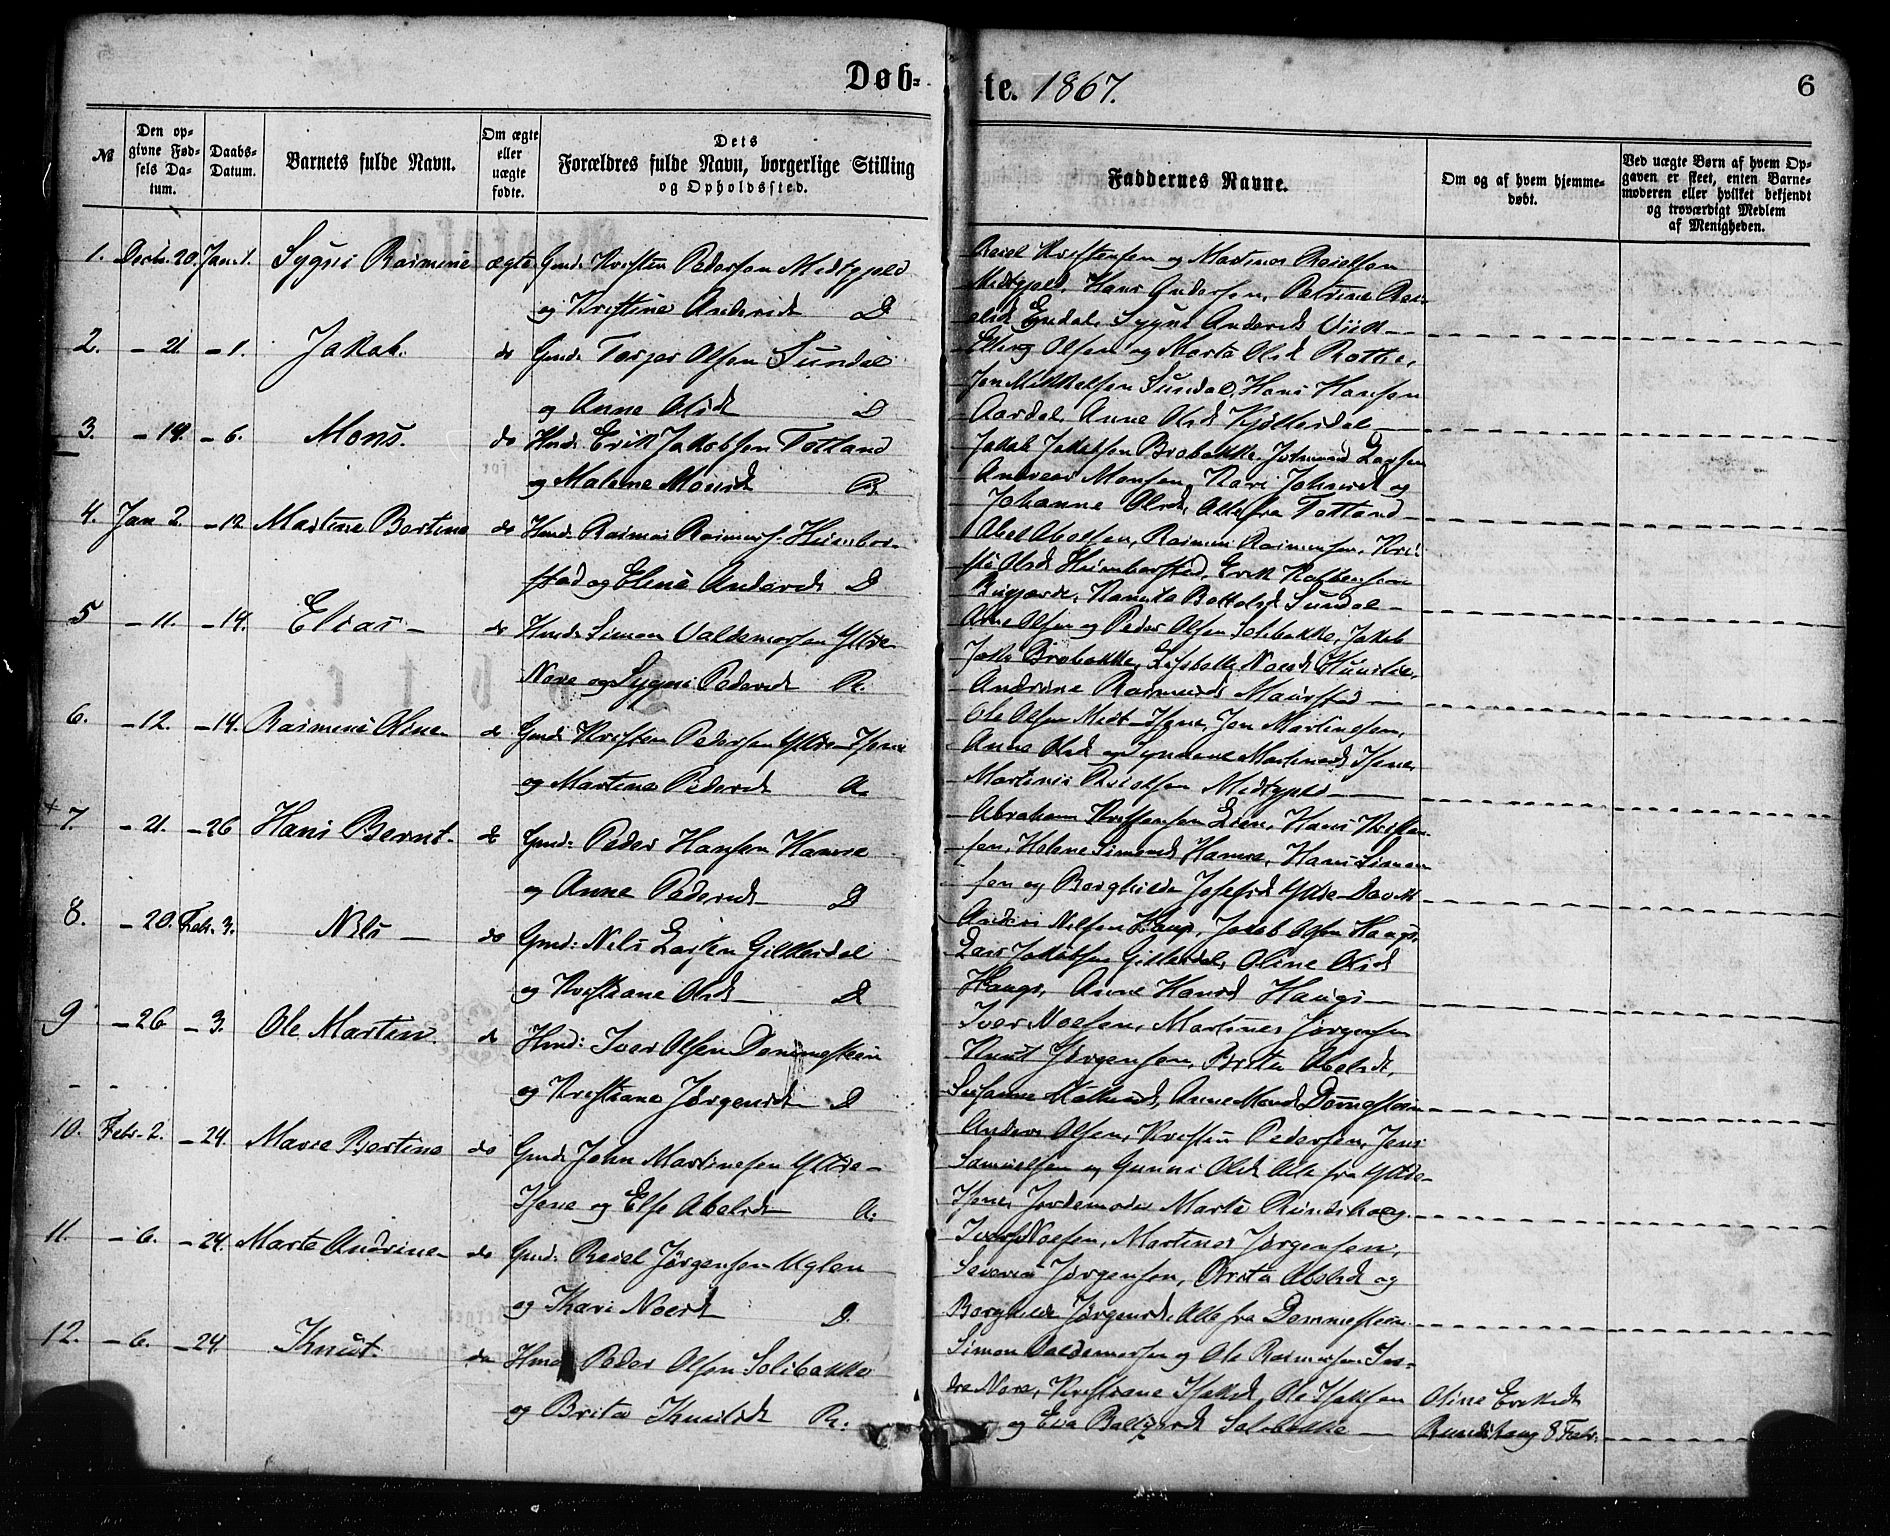 Døb-
te. 1867.
6
№
Den opgivne Fødsels Datum.
Daabs-Datum.
Barnets fulde Navn.
Om ægte eller uægte fødte.
Dets Forældres fulde Navn, borgerlige Stilling og Opholdssted.
Faddernes Navne.
Om og af hvem hjemmedøbt.
Ved uægte Børn af hvem Opgaven er skeet, enten Barnemoderen eller hvilket bekjendt og troværdigt Medlem af Menigheden.
1. Decbr. 20. Jan. 1. Sygni Rasmine ægte Gmd. Kristen Pedersen Midtgjeld
og Kristine Andersd. D
Reiel Kristensen og Martines Reielsen
Midtgjeld, Hans Andersen, Petrine
Endal, Sygni Andersd. Viik
2. - 21. - 1. Jakob. do Gmd. Torger Olsen Sundal
og Anne Olsd. D
Elling Olsen og Marta Olsd. Rothe,
Jon Mikkelsen Sundal, Hans Hansen
Aardal, Anne Olsd.
3. - 19. - 6. Mons. do Hmd. Erik Jakobsen Totland
og Malene Monsd. R
Jakob Jakobsen Brobakke, Larsen
Andreas Monsen, Kari Johnsd. og
Johanne Olsd. Alle fra Totland
4. Jan 2. - 12 Martine Bertine do Hmd. Rasmus Rasmus. Heimbor-
stad og Elene Andersd. D
Abel Abelsen, Rasmus Rasmussen, Kri-
Olsd. Heimborsted, Erik
Sundal
5 - 11. - 19. Elias - do Hmd. Simon Valdemarsen Ytre
Nore og Sygni Pedersd. R.
Arne Olsen og Peder Olsen Solibakke, Jakob
Brobakke, Lisbeth
Andrine Rasmusd. Maurstad
6. - 12. - 19. Rasmine Oline do Gmd. Kristen Pedersen Ytre Isene
og Martine Pedersd. A.
Ole Olsen Midt-Isene, Jon Martinesen,
Anne Olsd. og Martinesd. Isene,
Martines Reielsen Midtgjeld
+ 7. - 21. - 26 Hans Bernt. do Gmd: Peder Hansen Hamre
og Anne Pedersd. D
Abraham Kristensen Lien, Hans Kristen-
sen, Helene Simonsd. Hamre, Hans Simon-
sen og Borghilde Josefsd. Ytre Davik
8. - 20. Febr. 3. Nils - do Gmd: Nils Larsen Gilkesdal
og Kristiane Olsd. D
Anders Nilsen Haugs, Jakob Olsen Haugs,
Lars Jakobsen Gilkesdal, Oline Olsd.
Haugs, Anne Hansd. Haugs
9 - 26 - 3. Ole Martin. do Hmd: Iver Olsen Dommestein
og Kristiane Jørgensd. D
Iver Noesen, Martines Jørgensen
Knut Jørgensen, Brita Abelsd.
Susanne Anne Monsd. Domestein
10. Febr. 2. - 24. Marie Bertine do Gmd. John Martinesen Ytre-
Isene og Else Abelsd. A.
Anders Olsen, Kristen Pedersen, Jens
Samuelsen og Gunni Olsd. Alle fra Ytre-
Isene, Jordemoder Marte Rundshaug.
11. - 6. - 24. Marte Andrine do Gmd: Reiel Jørgensen Uglen
og Kari Noesd. D.
Iver Noesen, Martines Jørgensen,
Severin Jørgensen, Brita Abelsd. og
Borghilde Jørgensd. Alle fra Dommestein.
12. - 6. - 24. Knut. do Hmd. Peder Olsen Solibakke
og Brita Knutsd. R.
Simon Valdemarsen og Ole Rasmussen In-
dre Nore, Kristiane Isaksd. Ole Isaksen
og Eva Solibakke
Oline Eriksd.
Rundshaug 8 Febr.